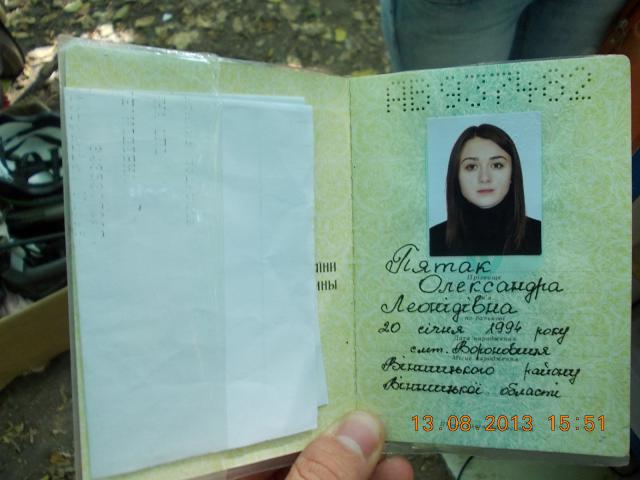 їни
ины
АВ 937462
Пятак
Прізвище
Олександра
Леонідівна
по батькові
20 січня 1994 року
Дата народження
смт. Вороновиця
Місце народження
Вінницького району
Вінницької області
13.08.2013 15:51